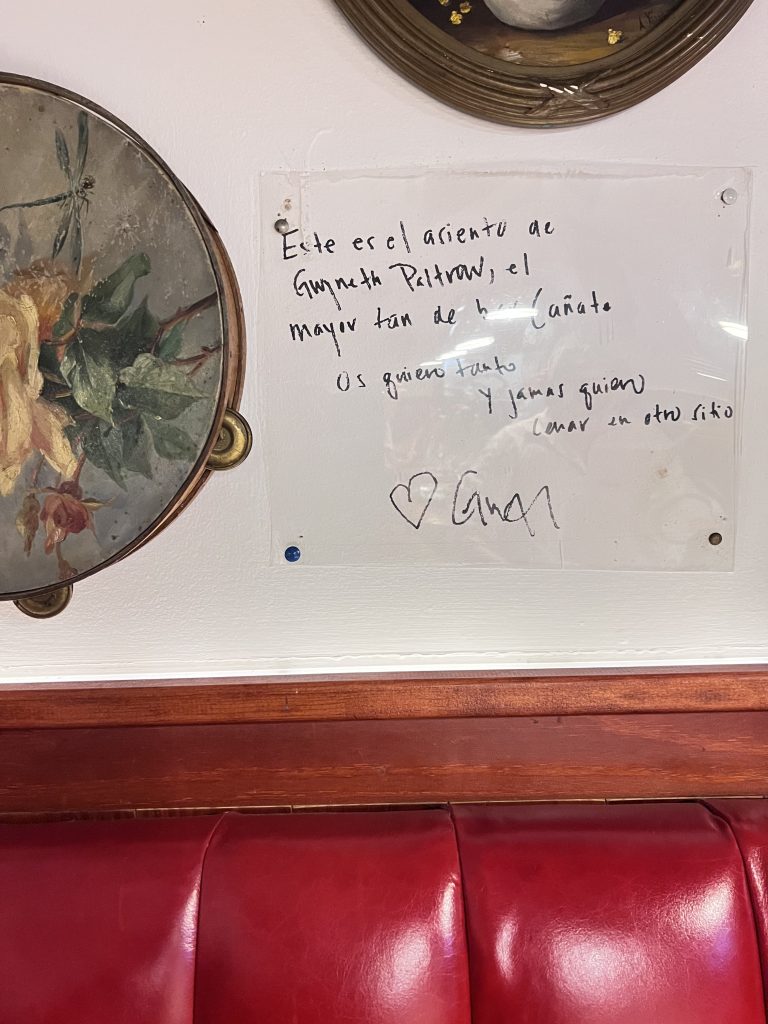 Este es el asiento de
Gwyneth Paltrow, el
mayor fan de Cañate
Os quiero tanto
y jamas quiero
cenar en otro sitio